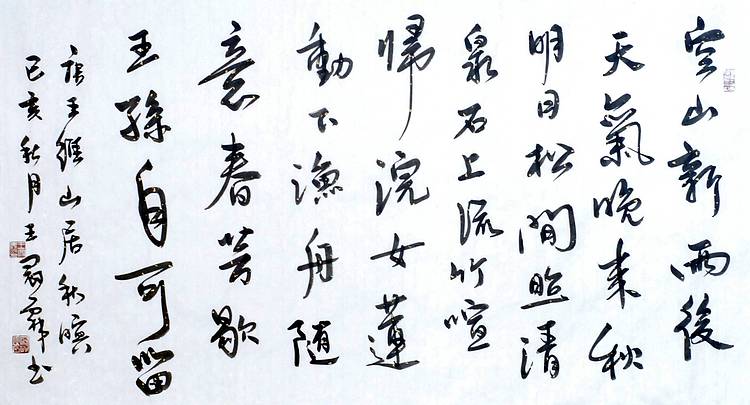 空山新雨後
天氣晚来秋
明月松間照清
泉石上流竹喧
歸浣女蓮
動下漁舟随
意春芳歇
王孫自可留
唐王維山居秋暝
己亥秋月王书